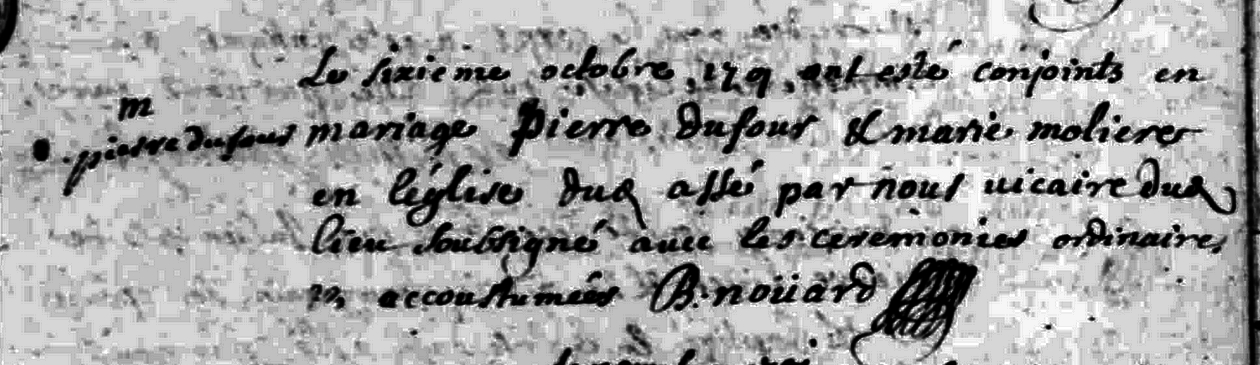 Le sixieme octobre 1719 ont esté conjoints en
m
pierre dufour
mariage Pierre dufour & marie molieres
en léglise dud assé par nous uicaire dud
lieu soubsigné auec les ceremonies ordinaires
accoustumées B. noüard